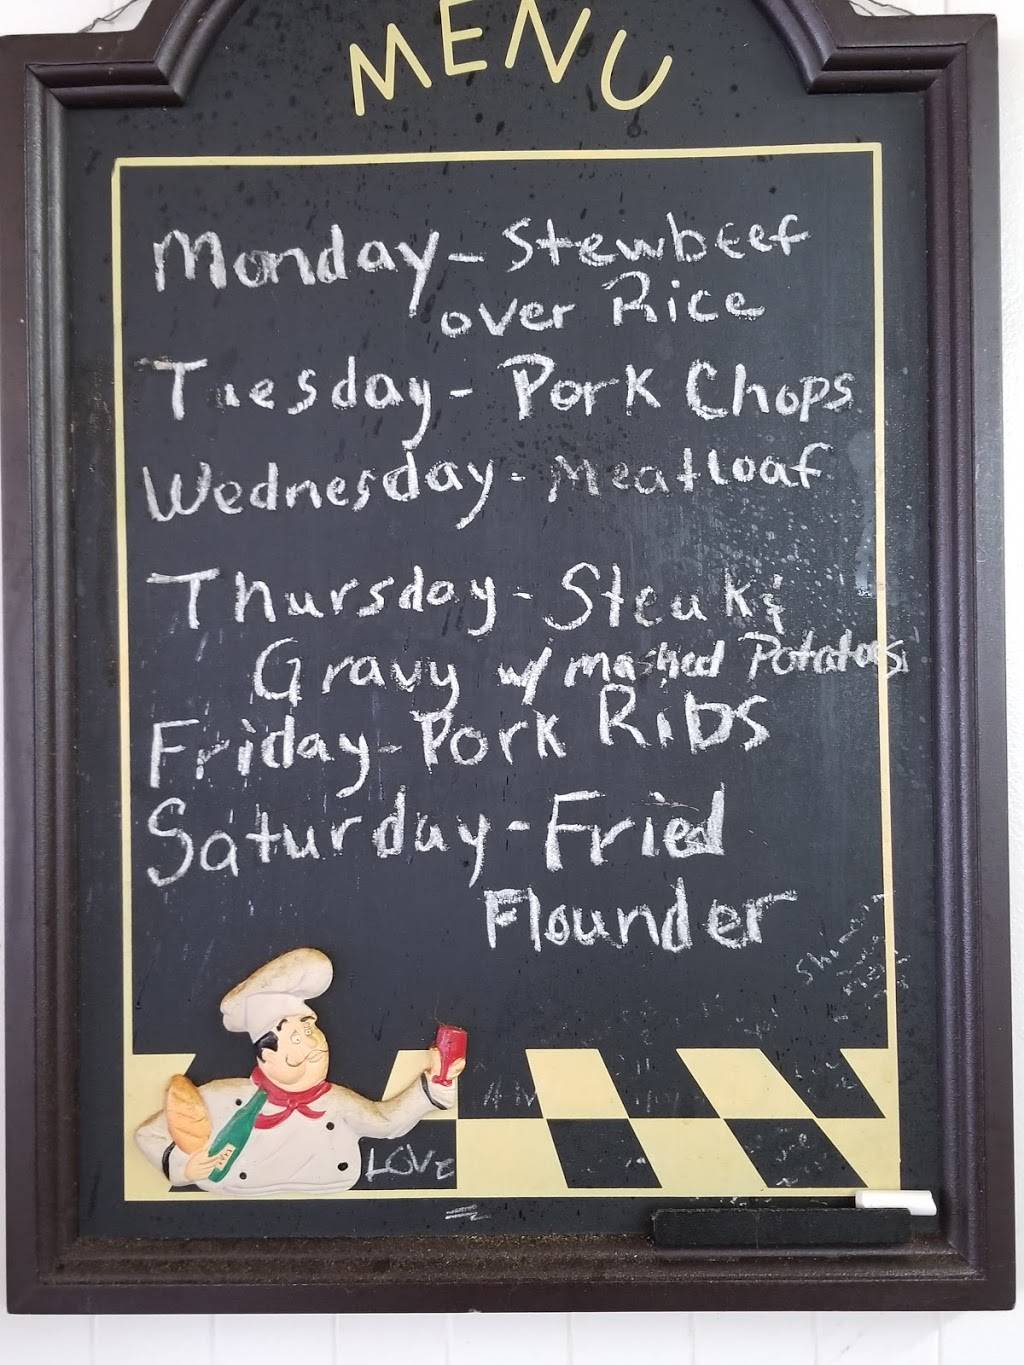 MENU
Monday - Stewbeef
over Rice
Tuesday - Pork Chops
Wednesday - Meatloaf
Thursday - Steak &
Gravy w/ mashed Potatoes
Friday - Pork Ribs
Saturday - Fried
Flounder
LOVE